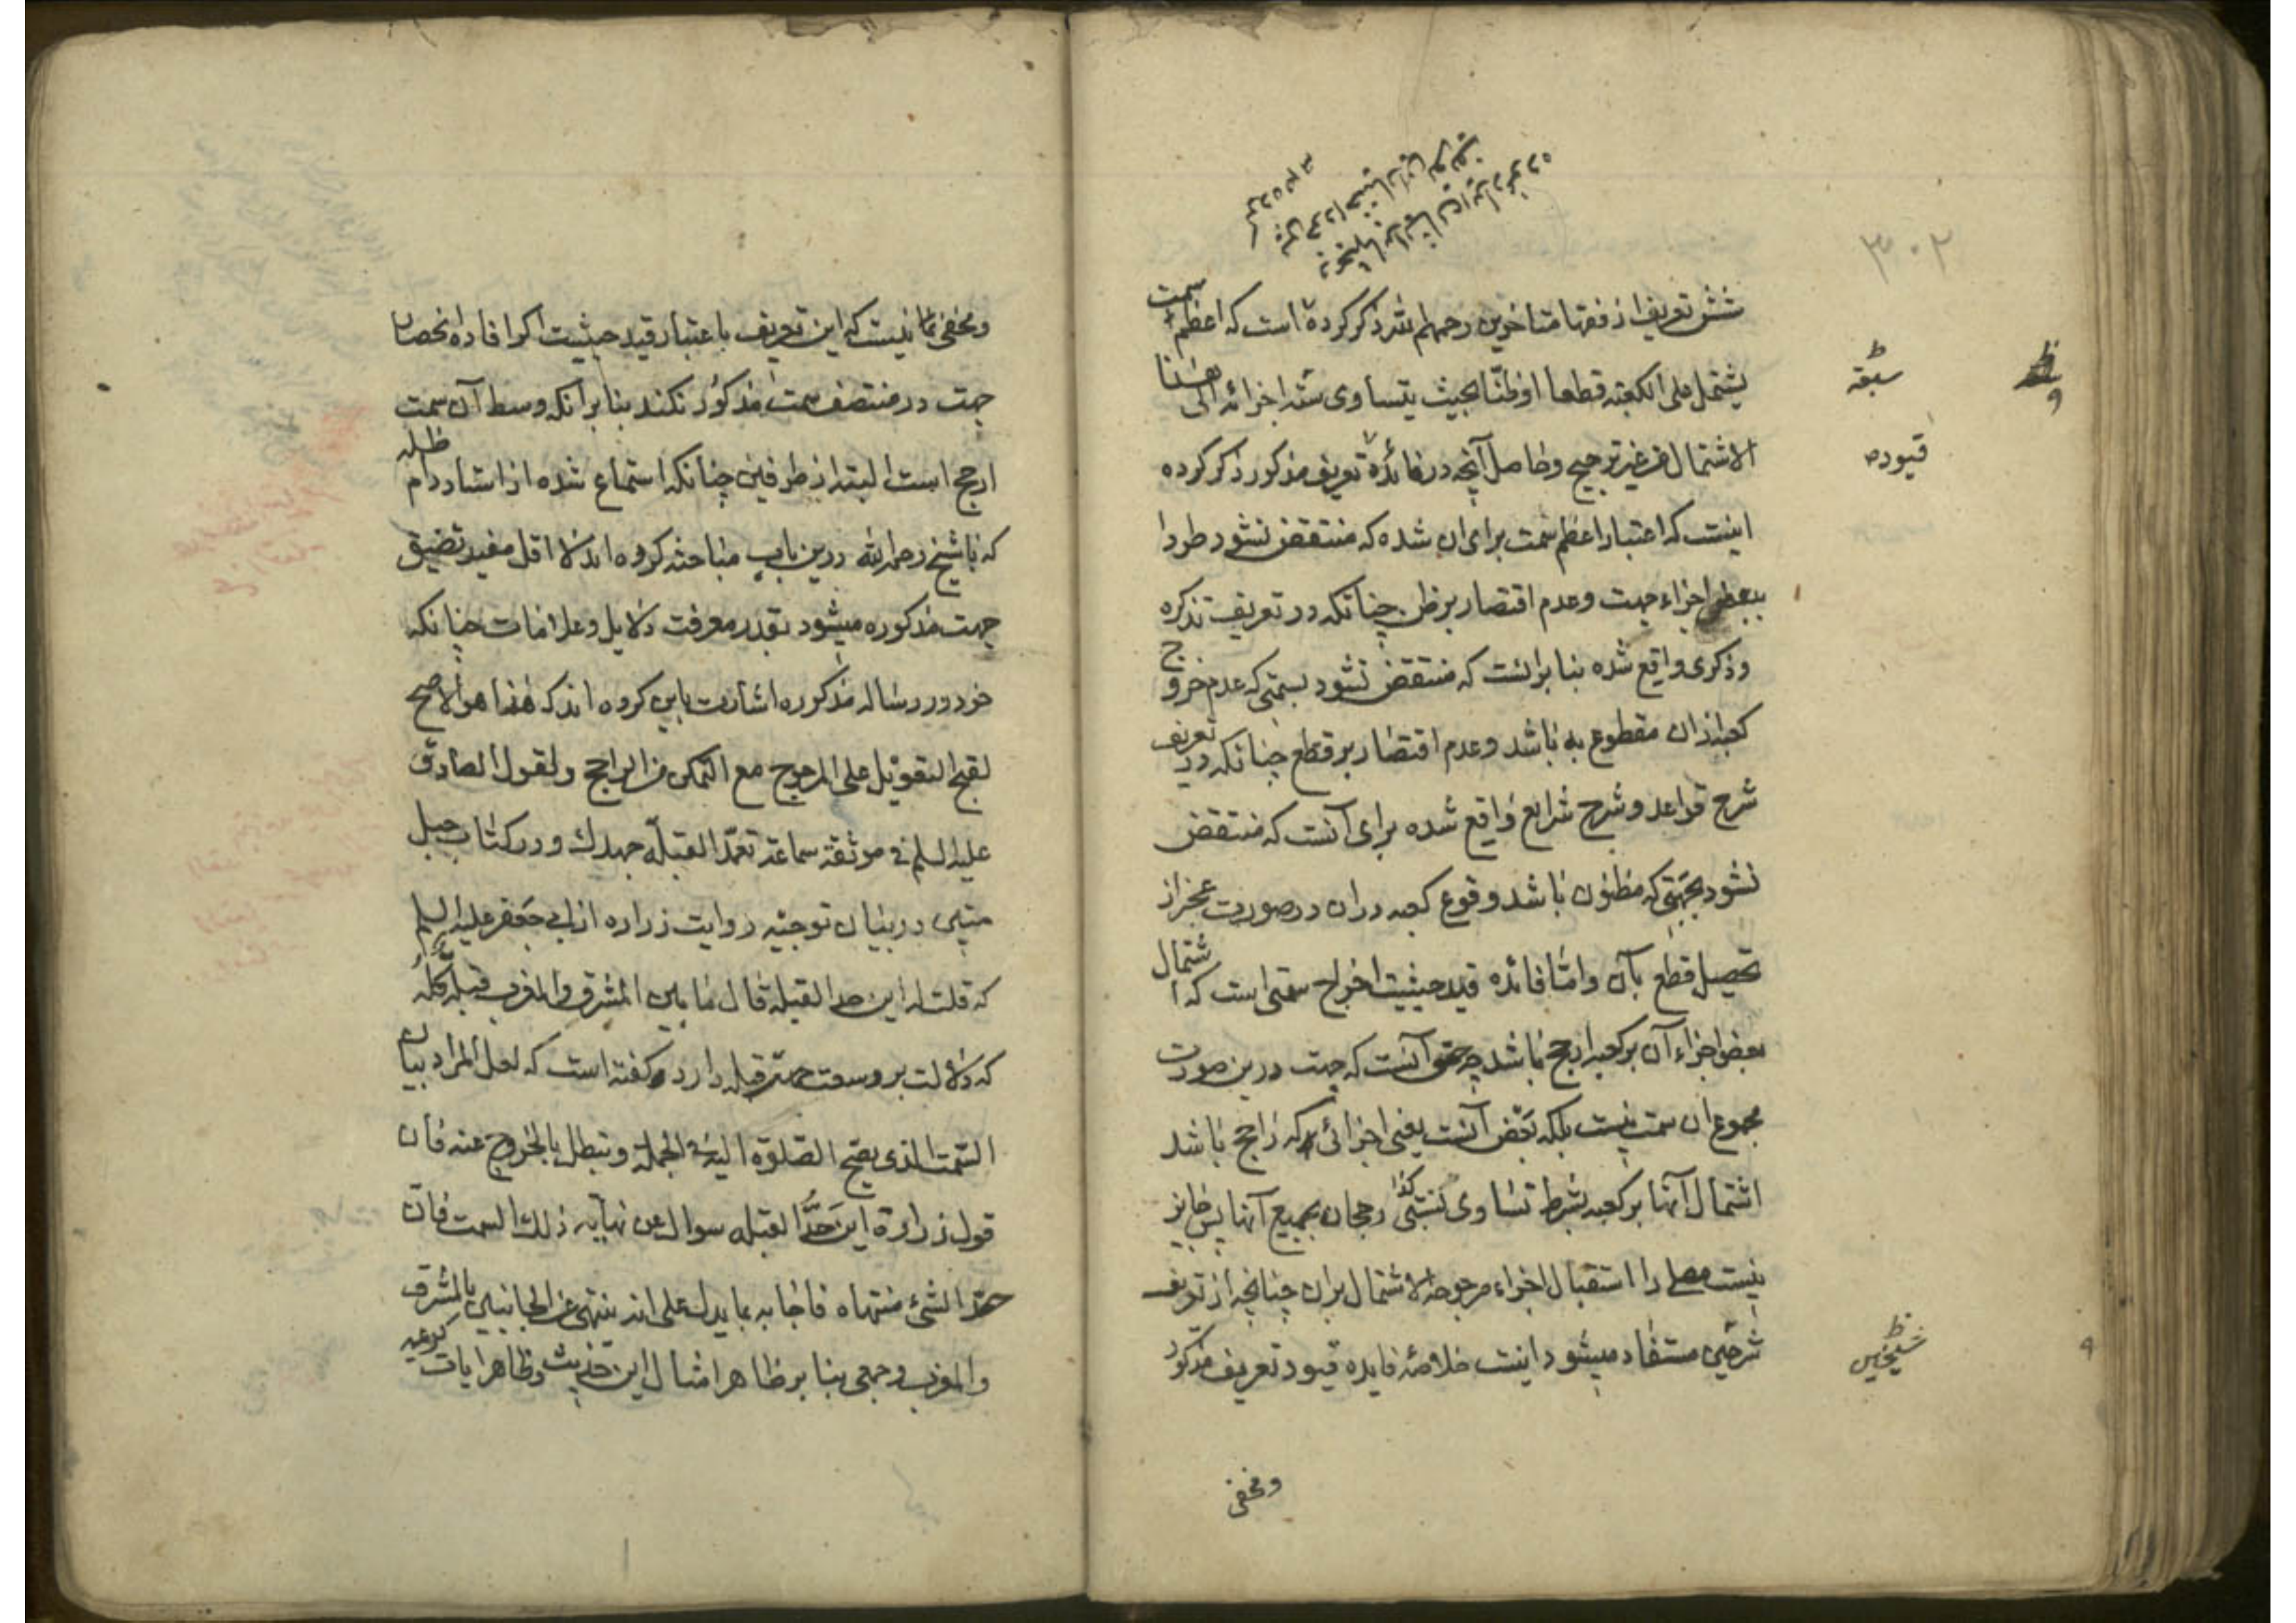 ۳۰۲
شش تعریف از فقها متاخرین رحمهم الله ذکر کرده است که اعظم سمت
یشتمل علی الکعبة قطعا او ظنّا بحیث یتساوی نسبة اجزائه الی هذا
الاشتمال من غیر ترجیح وحاصل آنچه در فائدهٔ تعریف مذکور ذکر کرده
اینست که اعتبار اعظم سمت برای ان شده که منتقض نشود طردا
ببعض اجزاء جهت وعدم اقتصار بر ظن چنانکه در تعریف تذکره
وذکری واقع شده بنا برانست که منتقض نشود بسمتی که عدم خروج
کعبه ازان مقطوع به باشد وعدم اقتصار بر قطع چنانکه در تعریف
شرح قواعد وشرح شرایع واقع شده برای آنست که منتقض
نشود بجهتی که مظنون باشد وقوع کعبه دران در صورت عجز از
تحصیل قطع بآن واما فائده قید حیثیت اخراج سمتی است که اشتمال
بعض اجزاء آن بر کعبه ارجح باشد چه حق آنست که جهت درین صورت
مجموع ان سمت نیست بلکه بعض آنست یعنی اجزائی که راجح باشد
اشتمال آنها بر کعبه بشرط تساوی نسبتی رجحان بجمیع آنها پس جایز
نیست مصلی را استقبال اجزاء مرجوحة الاشتمال بران چنانچه از تعریف
شرحین مستفاد میشود اینست خلاصهٔ فایده قیود تعریف مذکور
قیوده
ومخفی
ومخفی نماناد نیست که این تعریف باعتبار قید حیثیت اکر افاده انحصار
جهت در منتصف سمت مذکور نکند بنا برانکه وسط آن سمت
ارجح است البته از طرفین چنانکه استماع شده از استاد دام ظله
که با شیخ رحمه الله درین باب مباحثه کرده اند لا اقل مفید تضیق
جهت مذکوره میشود بقدر معرفت دلایل وعلامات چنانکه
خود در رساله مذکوره اشارت باین کرده اند که هذا هو الاصح
لقبح التعویل علی المرجوح مع التمکن من الراجح ولقول الصادق
علیه السلم فی موثقة سماعة تعمّد القبلة جهدك ودر کتاب حبل
متین در بیان توجیه روایت زراره از ابی جعفر علیه السلم
که قلت له این حد القبله قال ما بین المشرق والمغرب قبله کله
که دلالت بر وسعت جهت قبله دارد کفته است که لعل المراد بیان
السمت الذی یصح الصلوة الیه فی الجملة وتبطل بالخروج عنه فان
قول زرارة این حدّ القبله سوال عن نهایه ذلك السمت فان
حدّ الشئ منتهاه فاجابه بما یدل علی انه ینتهی عن الجانبین بالمشرق
والمغرب وجمعی بنا بر ظاهر امثال این حدیث وظاهر ایات کریمه